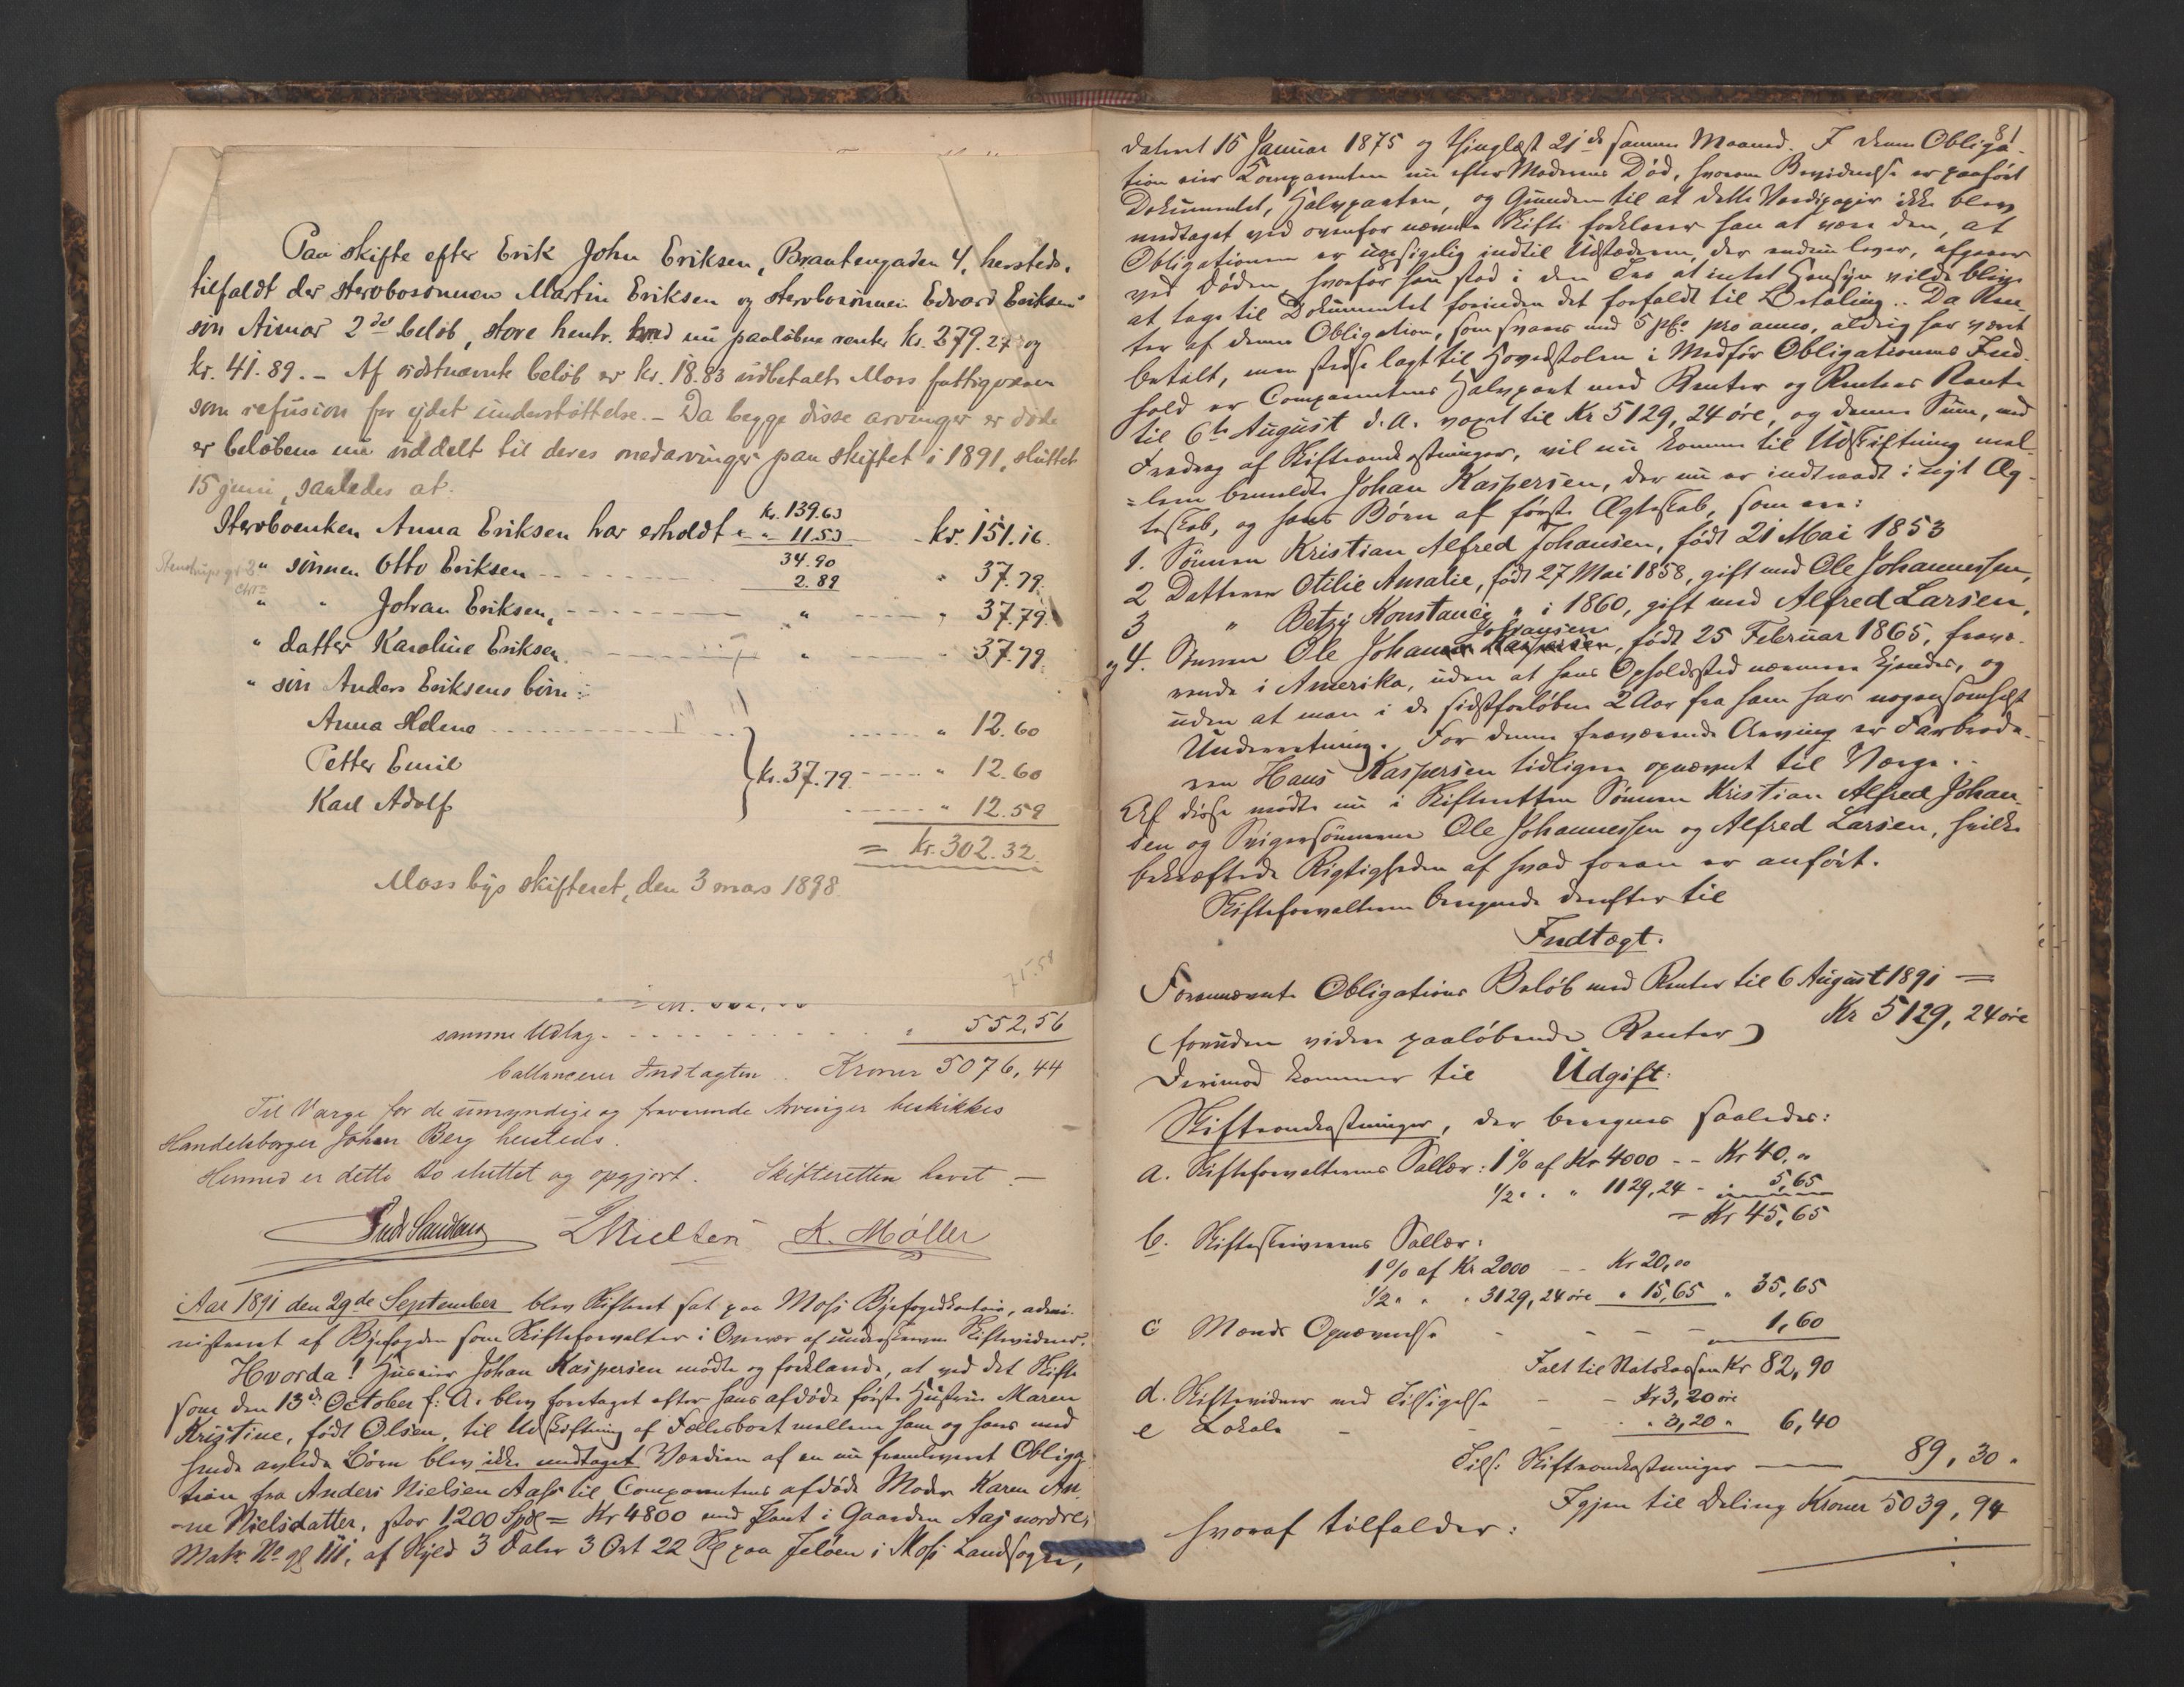 Paa skifte efter Erik John Eriksen, Brantengaden 4, hersteds,
tilfaldt der sterbosønnen Martin Eriksen og sterbosønnen Edvard Eriksens
søn Aimar 2de beløb, store hentr. med nu paaløbne renter kr. 279.27 og
kr. 41.89. – Af sidstnævnte beløb er kr. 18.83 udbetalt Moss fattigvæsen
som refusion for ydet understøttelse. – Da begge disse arvinger er døde
er beløbene nu uddelt til deres medarvinger paa skiftet i 1891, sluttet
15 juni, saaledes at
Sterboenken Anna Eriksen har erholdt kr. 139.63
" " 11.53 - kr. 151.16.
" sønnen Otto Eriksen 34.90
2.89 " 37.79.
" " Johan Eriksen, " " 37.79.
" datter Karoline Eriksen " " 37.79.
" søn Anders Eriksens børn:
Anna Helene " 12.60
Petter Emil } kr. 37.79 " 12.60
Karl Adolf " 12.59
= kr. 302.32.
Moss bys skifteret, den 3 mars 1898.
75.58
samme Udlag " 552,56
ballancerer Indtægten .. Kroner 5076,44
Til Værge for de umyndige og fraværende Arvinger beskikkes
Handelsborger Johan Berg hersteds.
Hermed er dette Bo sluttet og opgjort. Skifteretten hævet. –
K. Møller
Aar 1891 den 29de September blev Skifteret sat paa Moss Byfogedkontoir, admi-
nistreret af Byfogden som Skifteforvalter i Overvær af underskrevne Skiftevidner.
Hvorda! Huseier Johan Kaspersen mødte og forklarede, at ved det Skifte
som den 13de October f: A. blev foretaget efter hans afdøde første Hustru Maren
Kristine, født Olsen, til Udskiftning af Fællesboet mellem ham og hans med
hende avlede Børn blev ikke medtaget Værdien af en nu fremleveret Obliga-
tion fra Anders Nielsen Aas til Comparentens afdøde Moder Karen An-
ne Nielsdatter, stor 1200 Spd = Kr 4800 med Pant i Gaarden Aas nordre,
Matr. No 98 111, af Skyld 3 Daler 3 Ort 22 Sk paa Jeløen i Moss Landsogn,
81
dateret 15 Januar 1875 og thinglæst 21de samme Maaned. I denne Obliga-
tion eier Komparenten nu efter Moderens Død, hvorom Bevidnelse er paaført
Dokumentet, Halvparten, og Grunden til at dette Værdipapir ikke blev
medtaget ved ovenfor nævnte Skifte forklarer han at være den, at
Obligationen er uopsigelig indtil Udstæderen, der endnu lever, afgaaer
ved Døden, hvorfor han stod i den Tro at intet Hensyn vilde blive
at tage til Dokumentet forinden det forfaldt til Betaling. Da Ren-
ter af denne Obligation, som svares med 5 pCt. pro anno, aldrig har været
betalt, men stedse lagt til Hovedstolen i Medfør Obligationens Ind-
hold er Comparentens Halvpart med Renter og Renters Rente
til 6te August d. A. voxet til Kr 5129,24 øre, og denne Sum, med
Fradrag af Skifteomkostninger, vil nu komme til Udskiftning mel-
lem bemeldte Johan Kaspersen, der nu er indtraadt i nyt Æg-
teskab, og hans Børn af første Ægteskab, som ere:
1. Sønnen Kristian Alfred Johansen, født 21 Mai 1853
2 Datteren Otilie Amalie, født 27 Mai 1858, gift med Ole Johannessen,
3 " Betzy Konstance " i 1860, gift med Alfred Larsen,
og 4. Sønnen Ole Johan Johansen, født 25 Februar 1865, fravæ-
rende i Amerika, uden at hans Opholdssted nærmere kjendes, og
uden at man i de sidstforløbne 2 Aar fra ham har nogensomhelst
Underretning. For denne fraværende Arving er Farbrode-
ren Hans Kaspersen tidligere opnævnt til Værge.
Af disse mødte nu i Skifteretten Sønnen Kristian Alfred Johan-
sen og Svigersønnerne Ole Johannessen og Alfred Larsen, hvilke
bekræftede Rigtigheden af hvad foran er anført.
Skifteforvalteren beregnede derefter til
Indtægt.
Forannævnte Obligations Beløb med Renter til 6 August 1891 =
Kr 5129,24 øre
(foruden videre paaløbende Renter)
Derimod kommer til Udgift:
Skifteomkostninger, der beregnes saaledes:
a. Skifteforvalterens Sallær: 1% af Kr 4000 - - Kr 40,"
1/2 " " " 1129,24 - " 5,65
= Kr 45,65
b. Skifteskriverens Sallær:
1% af Kr 2000 - - Kr 20,00
1/2 " " " 3129,24 øre " 15,65 " 35,65
c Mænds Opnævnelse - - - - 1,60
Ialt til Statskassen Kr 82,90
d. Skiftevidner med Tilsigelse - - Kr 3,20 øre
e Lokale - - - " 3,20 " 6,40
Tils: Skifteomkostninger — 89,30 "
Igjen til Deling Kroner 5039,94
hvoraf tilfalder: